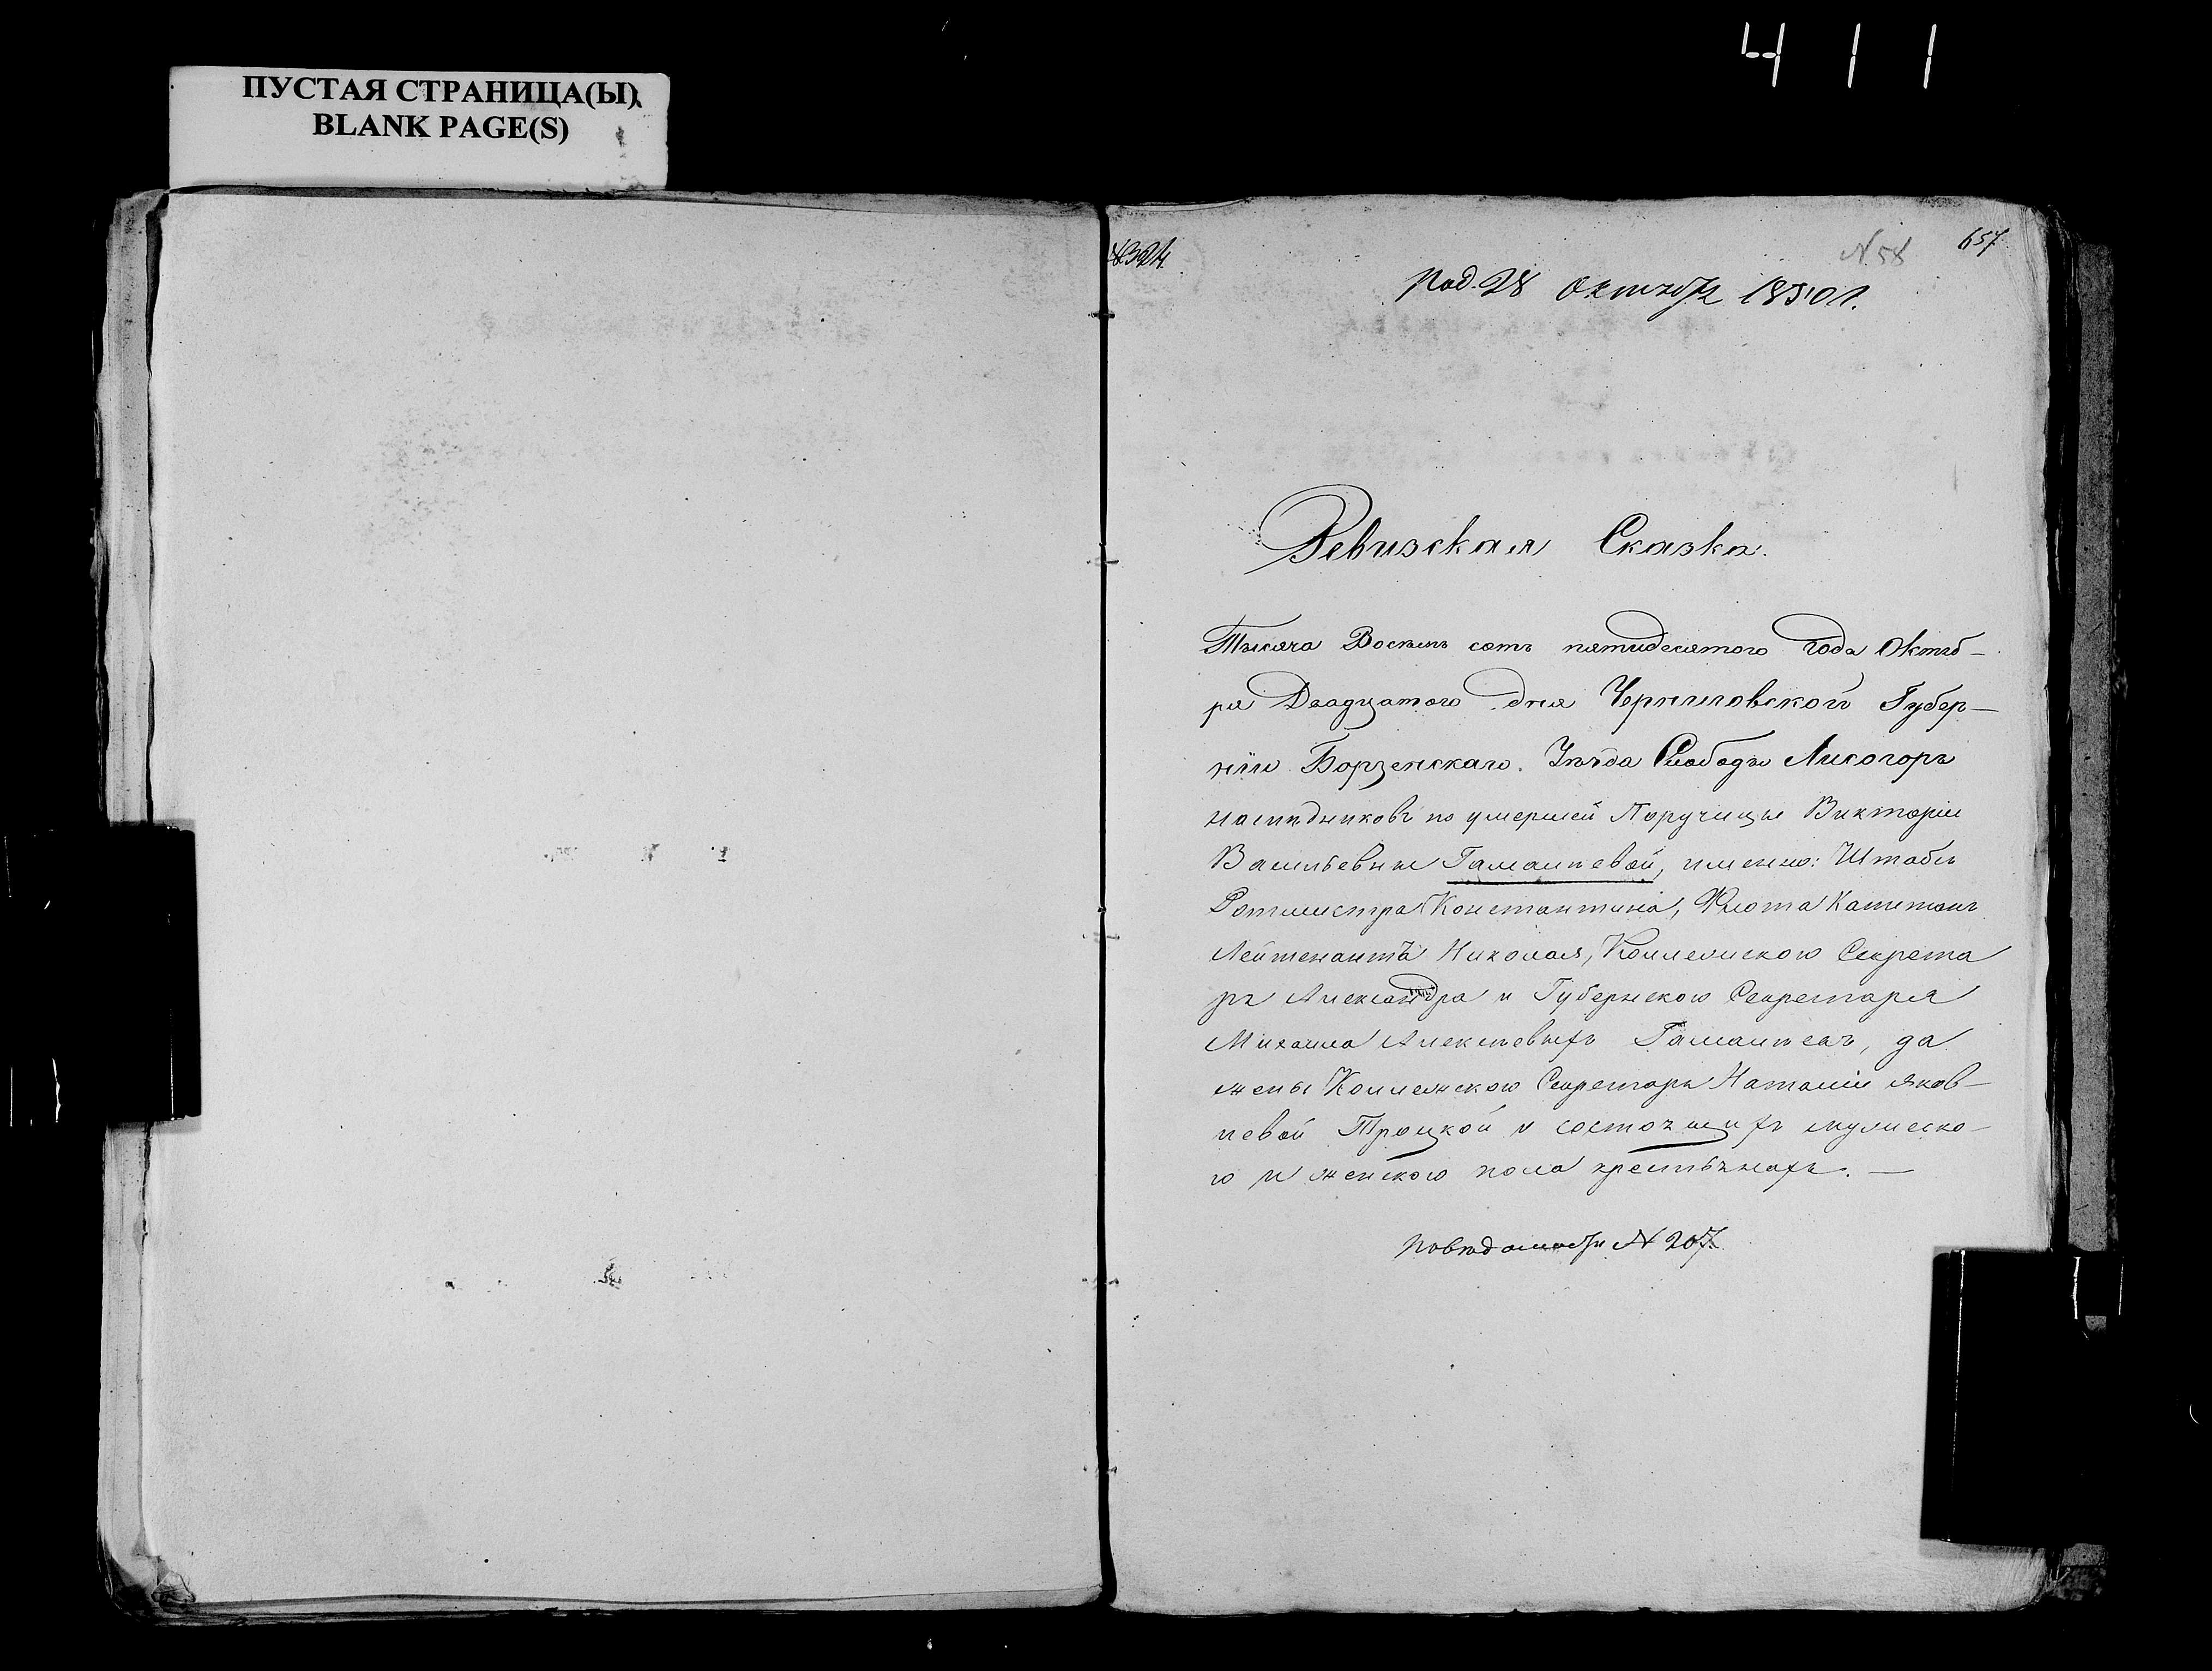 411
ПУСТАЯ СТРАНИЦА(Ы)
BLANK PAGE(S)
№ 324.
N. 58
657
Под. 28 Октября 1850 г.
Ревизская Сказка.
Тысяча Восемь сотъ пятидесятого года Октяб-
ря Двадцатого дня Черниговской Губер-
ніи Борзенскаго Уѣзда Слободы Лисогоръ
наслѣдниковъ по умершей Поручицы Викторіи
Васильевны Гамалѣевой, именно: Штабсъ
Ротмистра Константина, Флота Капитанъ
Лейтенанта Николая, Коллежского Секрета
ръ Александра и Губернского Секретаря
Михаила Алексѣевыхъ Гамалѣевъ, да
жены Коллежского Секретаря Наталіи Яков-
левой Троцкой и состоящихъ мужеско-
го и женского пола крестьянахъ. —
По вѣдомости № 207.